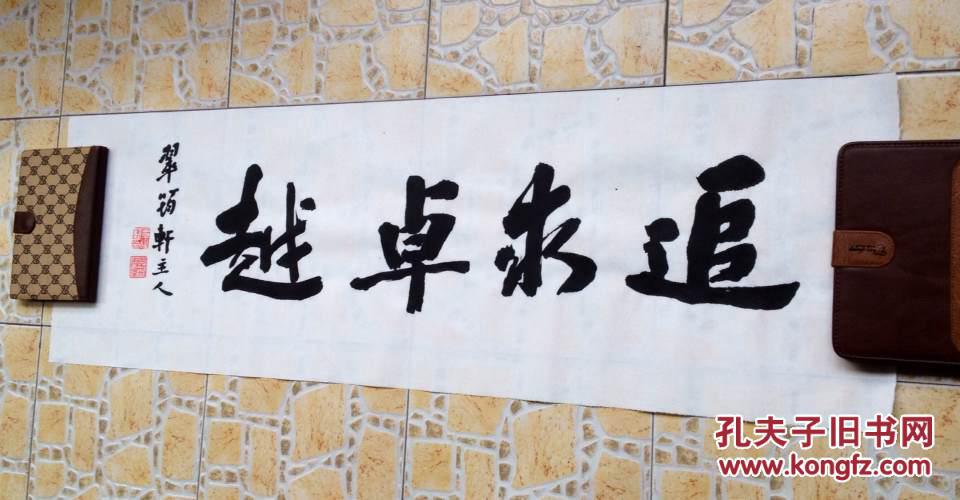 追求卓越
翠筠軒主人
孔夫子旧书网
www.kongfz.com